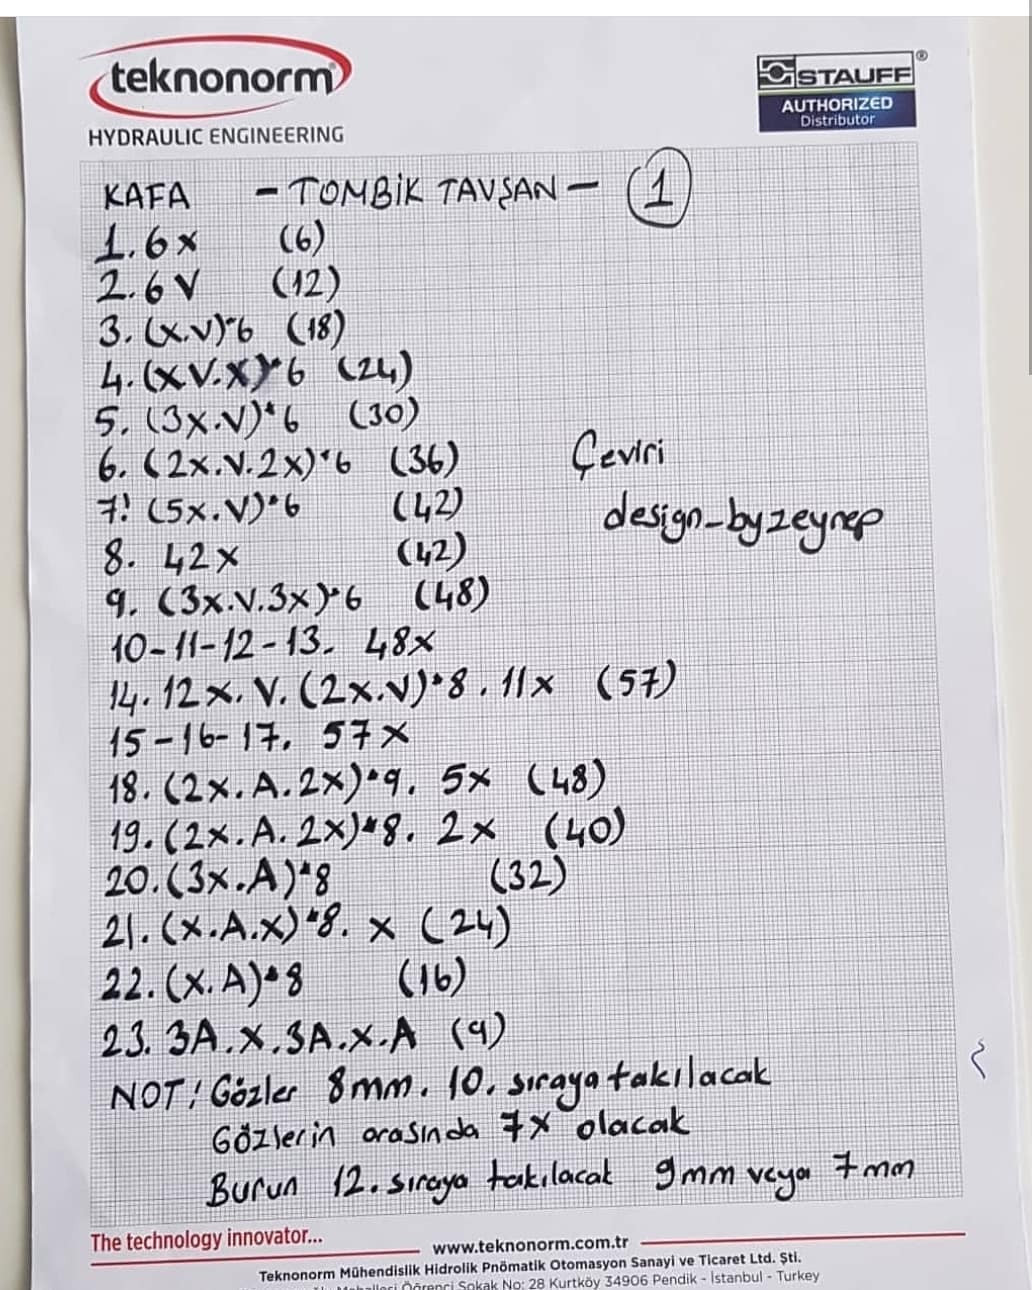 teknonorm
HYDRAULIC ENGINEERING
STAUFF®
AUTHORIZED
Distributor
KAFA - TOMBİK TAVŞAN - 1
1. 6x (6)
2. 6V (12)
3. (x.v)*6 (18)
4. (xV.x)*6 (24)
5. (3x.V)*6 (30)
6. (2x.V.2x)*6 (36)
7! (5x.V)*6 (42)
8. 42x (42)
9. (3x.V.3x)*6 (48)
10-11-12-13. 48x
14. 12x. V. (2x.V)*8. 11x (57)
15-16-17. 57x
18. (2x.A.2x)*9. 5x (48)
19. (2x.A.2x)*8. 2x (40)
20. (3x.A)*8 (32)
21. (x.A.x)*8. x (24)
22. (x.A)*8 (16)
23. 3A.x.3A.x.A (9)
Çeviri
design-byzeynep
NOT! Gözler 8mm. 10. sıraya takılacak
Gözlerin arasında 7x olacak
Burun 12. sıraya takılacak 9mm veya 7mm
The technology innovator...
www.teknonorm.com.tr
Teknonorm Mühendislik Hidrolik Pnömatik Otomasyon Sanayi ve Ticaret Ltd. Şti.
Öğrenci Sokak No: 28 Kurtköy 34906 Pendik - İstanbul - Turkey